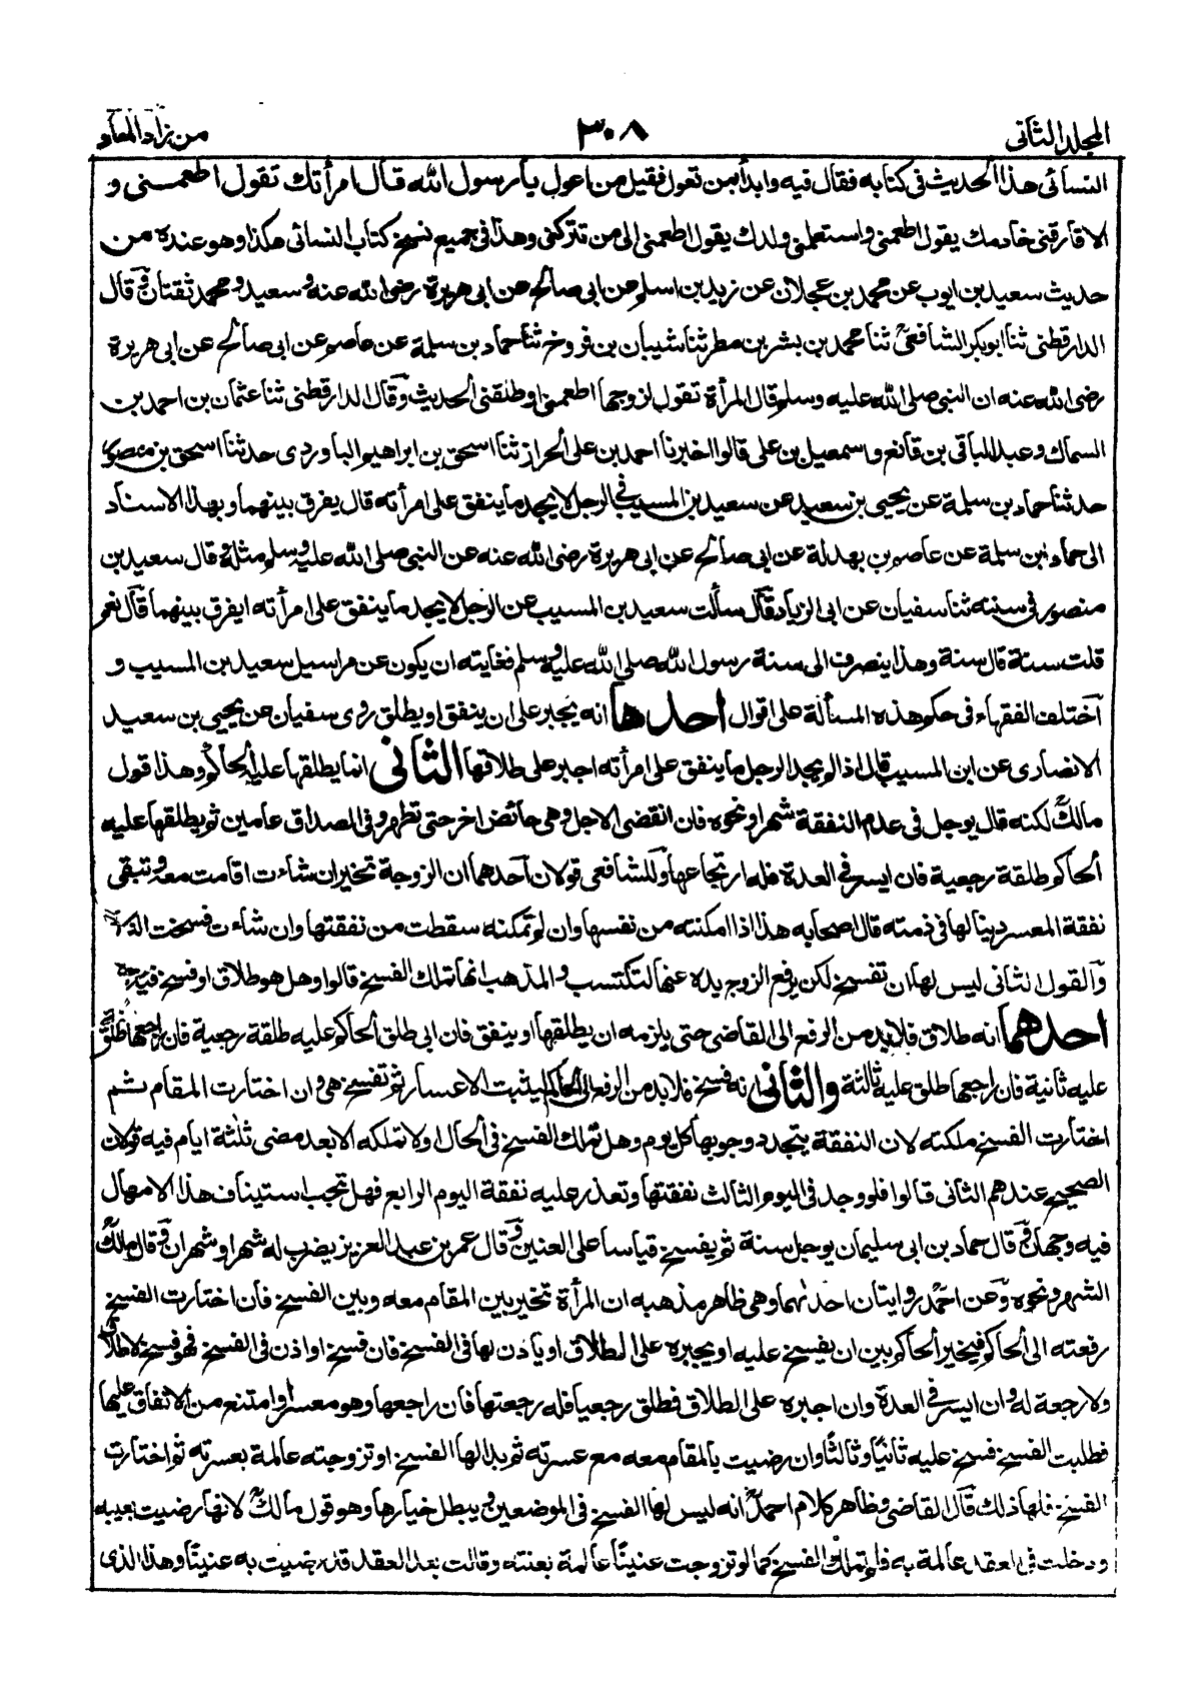 المجلد الثانى
٣٠٨
من زاد المعاد
النسائى هذا الحديث فى كتابه فقال فيه وابدأ بمن تعول فقيل من اعول يا رسول الله قال امرأتك تقول اطعمنى و
الا فارقنى خادمك يقول اطعمنى واستعملنى ولدك يقول اطعمنى الى من تتركنى وهذا فى جميع نسخ كتاب النسائى هكذا وهو عنده من
حديث سعيد بن ايوب عن محمد بن عجلان عن زيد بن اسلم عن ابى صالح عن ابى هريرة رضى الله عنه وسعيد ومحمد ثقتان وقال
الدارقطنى ثنا ابو بكر الشافعى ثنا محمد بن بشر بن مطر ثنا شيبان بن فروخ ثنا حماد بن سلمة عن عاصم عن ابى صالح عن ابى هريرة
رضى الله عنه ان النبى صلى الله عليه وسلم قال المرأة تقول لزوجها اطعمنى او طلقنى الحديث وقال الدارقطنى ثنا عثمان بن احمد بن
السماك وعبد الباقى بن قانع واسمعيل بن على قالوا اخبرنا احمد بن على الخراز ثنا اسحق بن ابراهيم الباوردى حدثنا اسحق بن منصور
حدثنا حماد بن سلمة عن يحيى بن سعيد عن سعيد بن المسيب فى الرجل لا يجد ما ينفق على امرأته قال يفرق بينهما وبهذا الاسناد
الى حماد ابن سلمة عن عاصم بن بهدلة عن ابى صالح عن ابى هريرة رضى الله عنه عن النبى صلى الله عليه وسلم مثله وقال سعيد بن
منصور فى سننه ثنا سفيان عن ابى الزياد قال سألت سعيد بن المسيب عن الرجل لا يجد ما ينفق على امرأته ايفرق بينهما قال نعم
قلت سنة قال سنة وهذا ينصرف الى سنة رسول الله صلى الله عليه وسلم فغايته ان يكون عن مراسيل سعيد بن المسيب و
اختلف الفقهاء فى حكم هذه المسألة على اقوال احدها انه يجبر على ان ينفق او يطلق روى سفيان عن يحيى بن سعيد
الانصارى عن ابن المسيب قال اذا لم يجد الرجل ما ينفق على امرأته اجبر على طلاقها الثانى انما يطلقها عليه الحاكم وهذا قول
مالك لكنه قال يوجل فى عدم النفقة شهرا ونحوه فان انقضى الاجل وهى حائض اخر حتى تطهر وفى الصداق عامين ثم يطلقها عليه
الحاكم طلقة رجعية فان ايسر فى العدة فله ارتجاعها وللشافعى قولان احدهما ان الزوجة تخير ان شاءت اقامت معه وتبقى
نفقة المعسر دينا لها فى ذمته قال اصحابه هذا اذا امكنته من نفسها وان لم تمكنه سقطت من نفقتها وان شاءت فسخت النكاح
والقول الثانى ليس لها ان تفسخ لكن يرفع الزوج يده عنها لتكتسب والمذهب انها تملك الفسخ قالوا وهل هو طلاق او فسخ فيه وجهان
احدهما انه طلاق فلا بد من الرفع الى القاضى حتى يلزمه ان يطلقها او ينفق فان ابى طلق الحاكم عليه طلقة رجعية فان راجعها طلق
عليه ثانية فان راجعها طلق عليه ثالثة والثانى انه فسخ فلا بد من الرفع الى الحاكم ليثبت الاعسار ثم تفسخ هى وان اختارت المقام ثم
اختارت الفسخ ملكته لان النفقة يتجدد وجوبها كل يوم وهل تملك الفسخ فى الحال او لا تملكه الا بعد مضى ثلثة ايام فيه قولان
الصحيح عندهم الثانى قالوا فلو وجد فى اليوم الثالث نفقتها وتعذر عليه نفقة اليوم الرابع فهل تجب استيناف هذا الامهال
فيه وجهان وقال حماد بن ابى سليمان يوجل سنة ثم يفسخ قياسا على العنين وقال عمر بن عبد العزيز يضرب له شهر او شهران وقال مالك
الشهر ونحوه وعن احمد روايتان احدٰهما وهى ظاهر مذهبه ان المرأة تخير بين المقام معه وبين الفسخ فان اختارت الفسخ
رفعته الى الحاكم فيخير الحاكم بين ان يفسخ عليه او يجبره على الطلاق او ياذن لها فى الفسخ فان فسخ او اذن فى الفسخ فهو فسخ لا طلاق
ولا رجعة له وان ايسر فى العدة وان اجبره على الطلاق فطلق رجعيا فله رجعتها فان راجعها وهو معسر او امتنع من الانفاق عليها
فطلبت الفسخ فسخ عليه ثانيا وثالثا وان رضيت بالمقام معه مع عسرته ثم بدا لها الفسخ او تزوجته عالمة بعسرته ثم اختارت
الفسخ فلها ذلك قال القاضى وظاهر كلام احمد انه ليس لها الفسخ فى الموضعين ويبطل خيارها وهو قول مالك لانها رضيت بعيبه
ودخلت فى العقد عالمة به فلم تملك الفسخ كما لو تزوجت عنينا عالمة بعنته وقالت بعد العقد قد رضيت به عنينا وهذا الذى